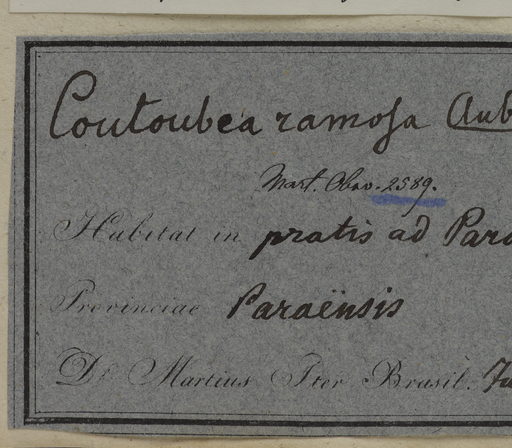 Coutoubea ramosa Aub
Mart. Obsv. 2589.
Habitat in pratis ad Para
Provinciae Paraënsis
Dr. Martius Iter Brasil. Ju